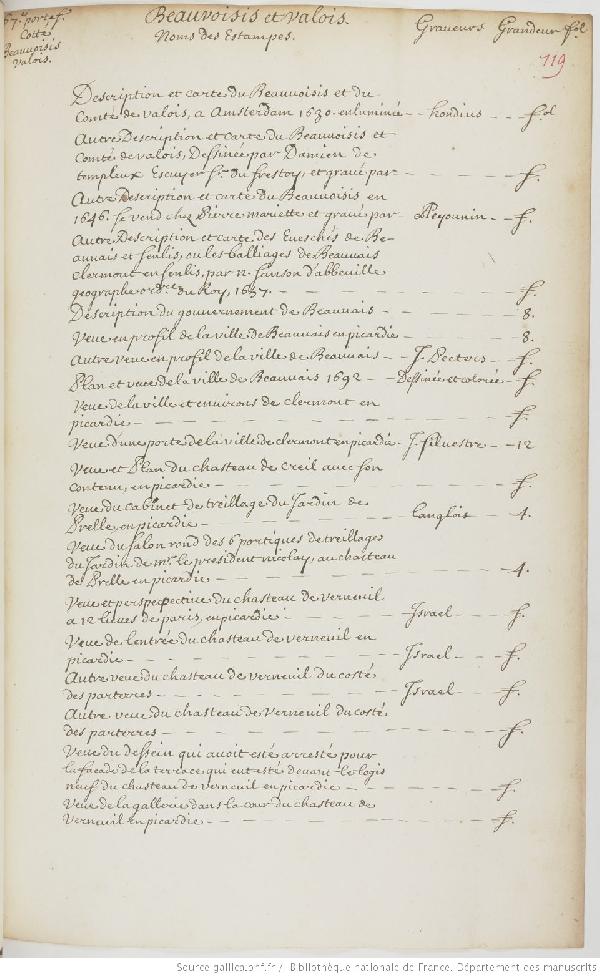 57.e portef.
Cotté
Beauvoisis
Valois.
Beauvoisis et valois.
Noms des Estampes. Graveurs Grandeur fol.
119
Description et carte du Beauvoisis et du
Comté de valois, a Amsterdam 1630. enluminée - hondius - fol
Autre Description et carte du Beauvoisis et
Comté de valois, Dessinée par Damien de
templeux Escuyer Sr. du frestoy, et gravé par - f.
Autre Description et carte du Beauvoisis en
1646. se vend chez Pierre mariette et gravé par - Peyounin - f.
Autre Description et carte des Eveschés de Be-
auvais et senlis, ou les balliages de Beauvais
clermont en senlis, par n. sanson d'abbeuille
geographe ordre. du Roy, 1657. - f.
Description du gouvernement de Beauvais - 8.
Veue en profil de la ville de Beauvais en picardie - 8.
Autre veue en profil de la ville de Beauvais - J. Peeters - f.
Plan et veue de la ville de Beauvais 1692 - Dessinée et colorée - f.
Veue de la ville et environs de clermont en
picardie - f.
Veue d'une porte de la ville de clermont en picardie - J. silvestre - 12
Veue et Plan du chasteau de creil avec son
contenu, en picardie - f.
Veue du cabinet de treillage du Jardin de
Prelle, en picardie - Langlois - 4.
Veue du salon rond des 6 portiques de treillages
du Jardin de mr. le president nicolay, au chasteau
de Prelle en picardie - 4.
Veue et perspective du chasteau de verneuil
a 12 lieues de paris, en picardie - Israel - f.
Veue de l'entrée du chasteau de verneuil en
picardie - Israel - f.
Autre veue du chasteau de verneuil du costé
des parterres - Israel - f.
Autre veue du chasteau de Verneuil du costé
des parterres - f.
Veue du dessein qui avoit esté arresté pour
la facade de la terrace qui eut esté devant le logis
neuf du chasteau de verneuil en picardie - f.
Veue de la gallerie dans la cour du chasteau de
Verneuil en picardie - f.
Source gallica.bnf.fr / Bibliothèque nationale de France. Département des manuscrits